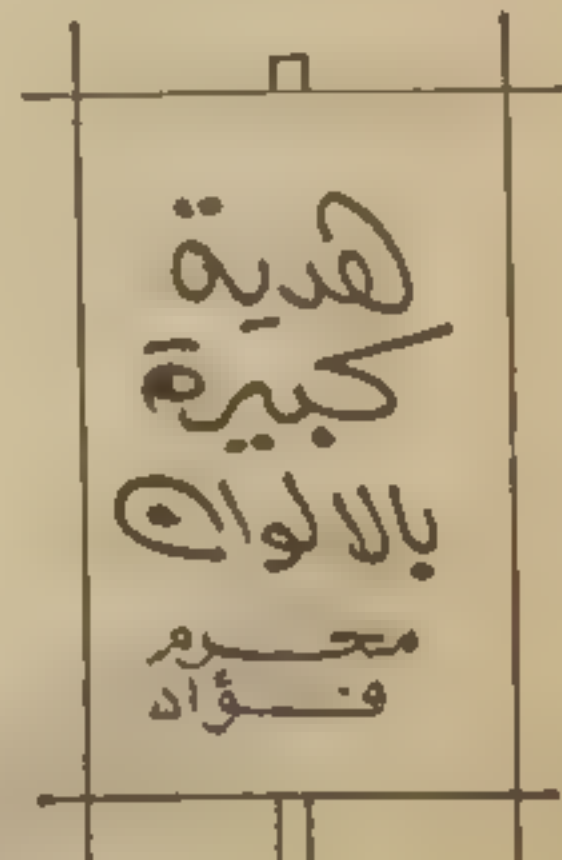 هدية
كبيرة
بالالوان
محرم
فؤاد